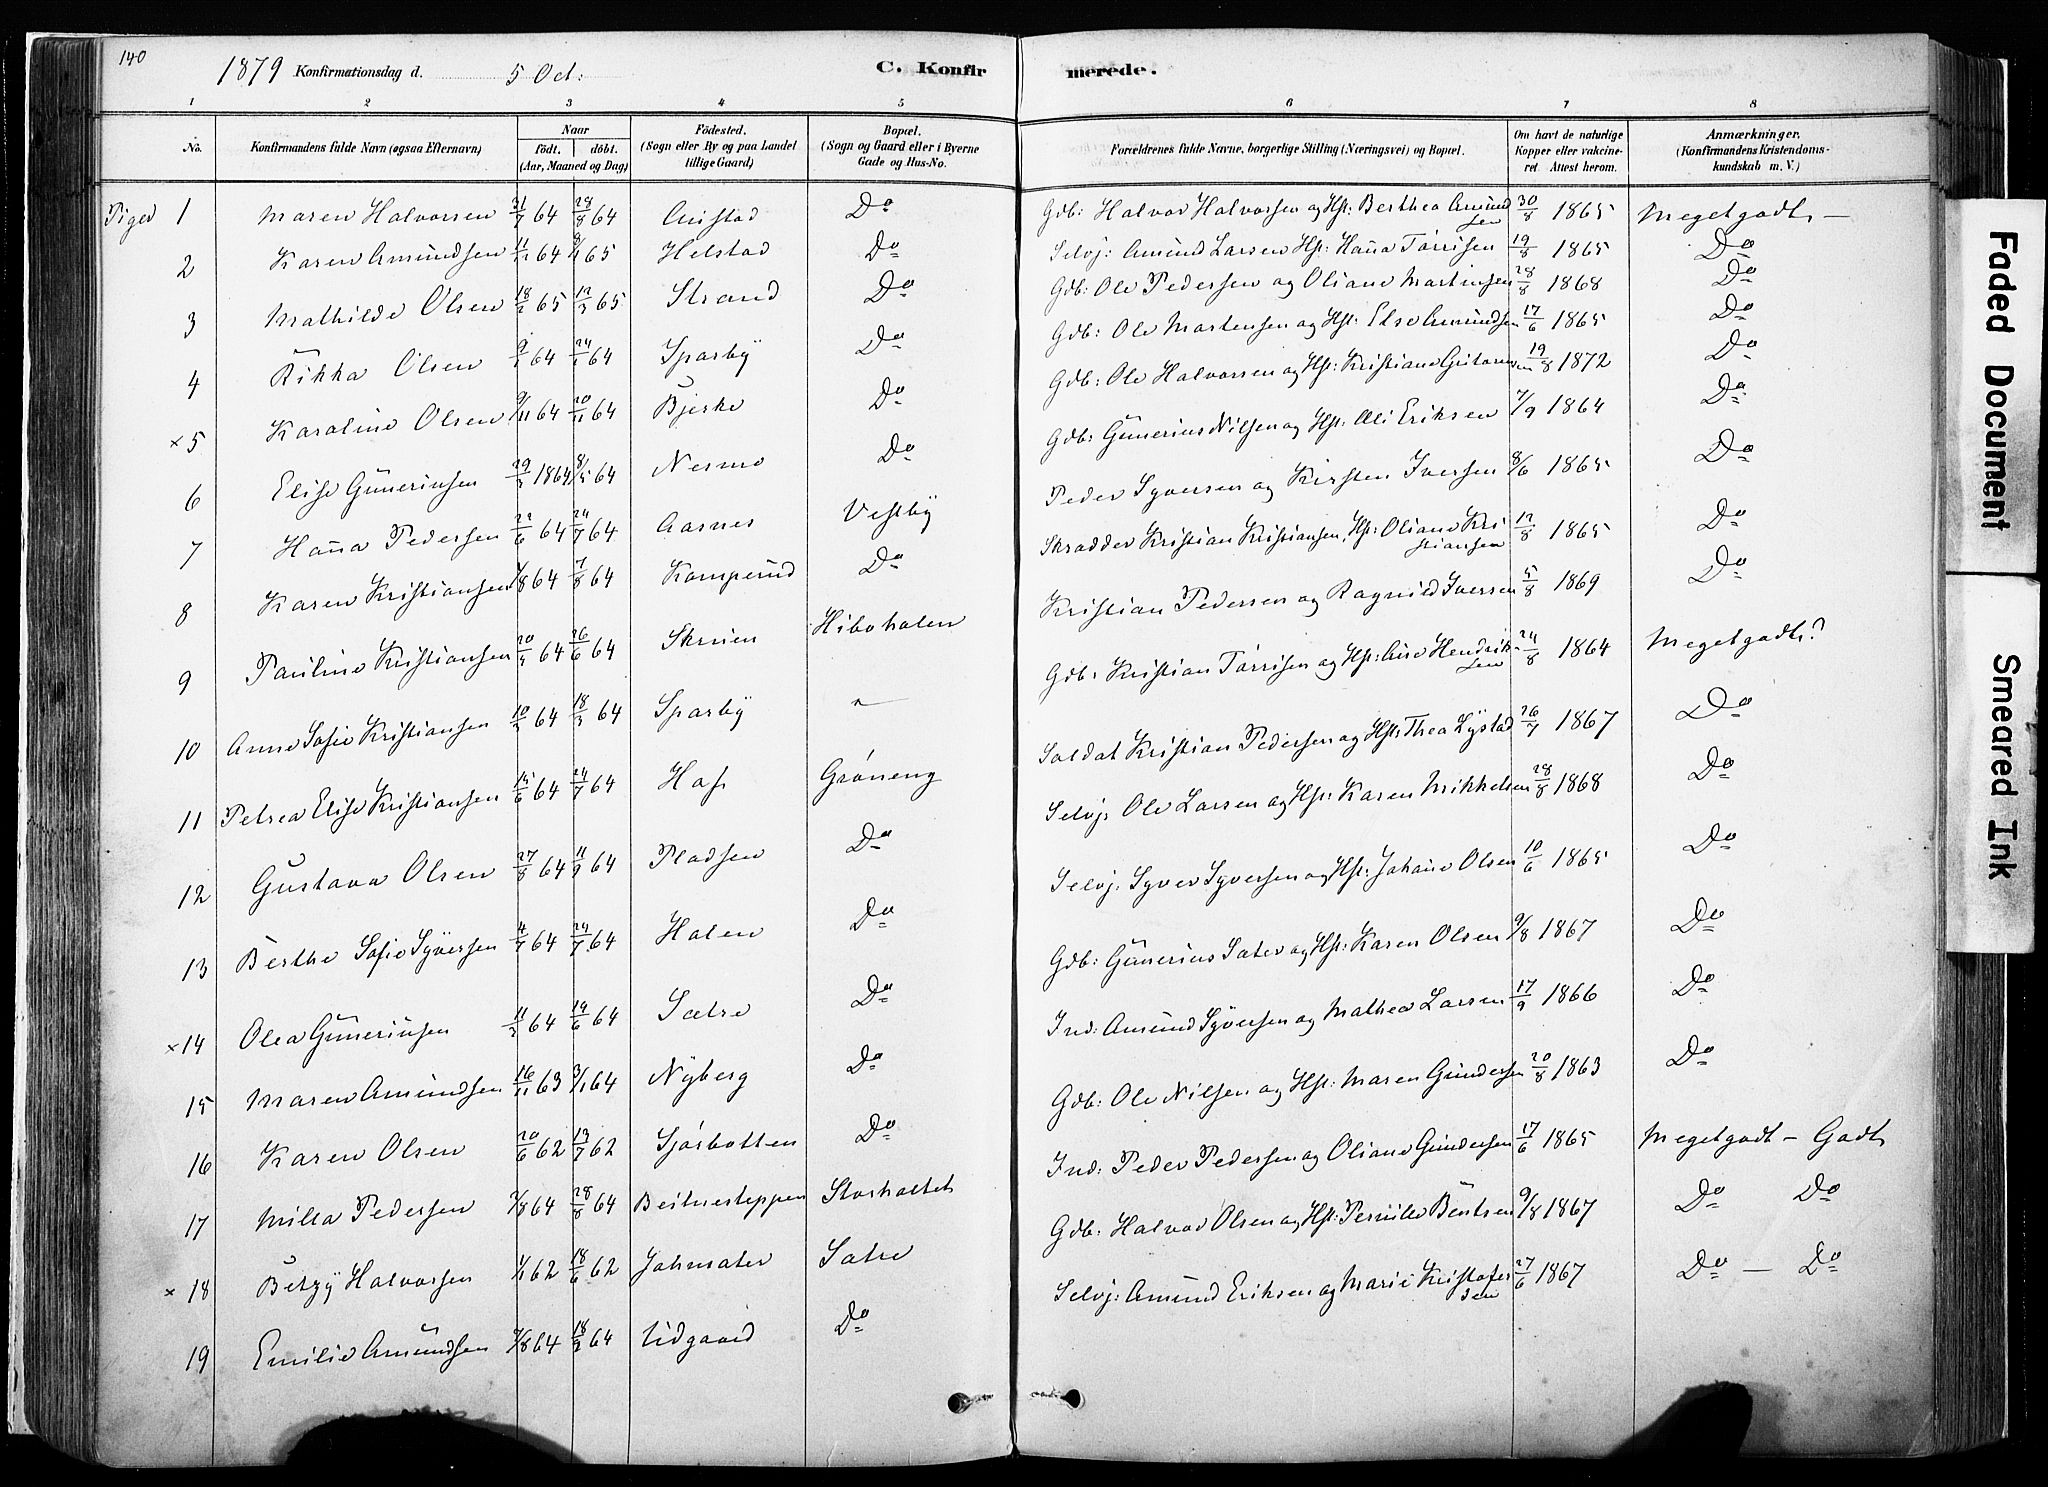 140
1879 Konfirmationsdag d. 5 Oct: C. Konfirmerede.
1 2 3 4 5 6 7 8
No. Konfirmandens fulde Navn (ogsaa Efternavn) Naar födt. döbt. (Aar, Maaned og Dag) Födested. (Sogn eller By og paa Landet tillige Gaard) Bopæl. (Sogn og Gaard eller i Byerne Gade og Hus-No. Forældrenes fulde Navne, borgerlige Stilling (Næringsvei) og Bopæl. Om havt de naturlige Kopper eller vakcineret Attest herom. Anmærkninger. (Konfirmandens Kristendomskundskab m. V.)
Piger 1 Maren Halvorsen 31/7 64 28/8 64 Do Gdb: Halvor Halvorsen og Hst: Berthea Amundsen 30/8 1865 Megetgodt –
2 Karen Amundsen 64 65 Helstad Do Selvj: Amund Larsen Hst: Hanna Törrisen 19/8 1865 Do
3 Mathilde Olsen 65 65 Strand Do Gdb: Ole Pedersen og Oliane Martinsen 28/8 1868 Do
4 Rikka Olsen 64 64 Sparby Do Gdb: Ole Martensen og Hst: Else Amundsen 17/6 1865 Do
×5 Karoline Olsen 9/11 64 20/11 64 Bjerke Do Gdb: Ole Halvorsen og Hst: Kristiane 19/8 1872 Do
6 Elise Gunneriusen 1864 64 Nermo Do Gdb: Gunerius Nilsen og Hst: Eriksen 7/9 1864 Do
7 Hanna Pedersen 64 24/7 64 Aasnes Vestby Peder Syversen og Kirsten Iversen 8/6 1865 Do
8 Karen Kristiansen 64 7/8 64 Kamperud Do Skrædder Kristian Kristiansen, Hst: Oliane Kristiansen 12/8 1865 Do
9 Pauline Kristiansen 64 26/6 64 Skruen Hiboholen Kristian Pedersen og Ragnild Iversen 5/8 1869 Do
10 Anne Sofie Kristiansen 64 64 Sparby Gdb: Kristian Törrisen og Hst: Hendriksen 24/8 1864 Megetgodt?
11 Petrea Elise Kristiansen 15/6 64 24/7 64 Hof Gröneng Soldat Kristian Pedersen og Hst: Thea Lystad 26/7 1867 Do
12 Gustava Olsen 27/8 64 11/9 64 Pladsen Do Selvj. Ole Larsen og Hst: Karen Mikkelsen 28/8 1868 Do
13 Berthe Sofie Syversen 4/7 64 24/7 64 Holen Do Selvj. Syver Syversen og Hst: Johane Olsen 10/6 1865 Do
×14 Olea Guneriusen 64 19/6 64 Sætre Do Gdb: Gunerius Sæter og Hst: Karen Olsen 9/8 1867 Do
15 Maren Amundsen 16/11 63 3/1 64 Nyberg Do Ind: Amund Syversen og Mathea Larsen 17/9 1866 Do
16 Karen Olsen 20/6 62 13/7 62 Sjörbotten Do Gdb: Ole Nilsen og Hst: Maren Gundersen 20/8 1863 Do
17 Milla Pedersen 64 28/8 64 Storholtet Ind: Peder Pedersen og Oliane Gundersen 17/6 1865 Megetgodt – Godt
×18 Betzy Halvorsen 62 18/6 62 Sætre Gdb: Halvor Olsen og Hst: Pernille Bentsen 9/8 1867 Do Do
19 Emilie Amundsen 64 64 Udgaard Do Selvj: Amund Eriksen og Marie Kristofersen 27/6 1867 Do – Do
Faded Document
Smeared Ink